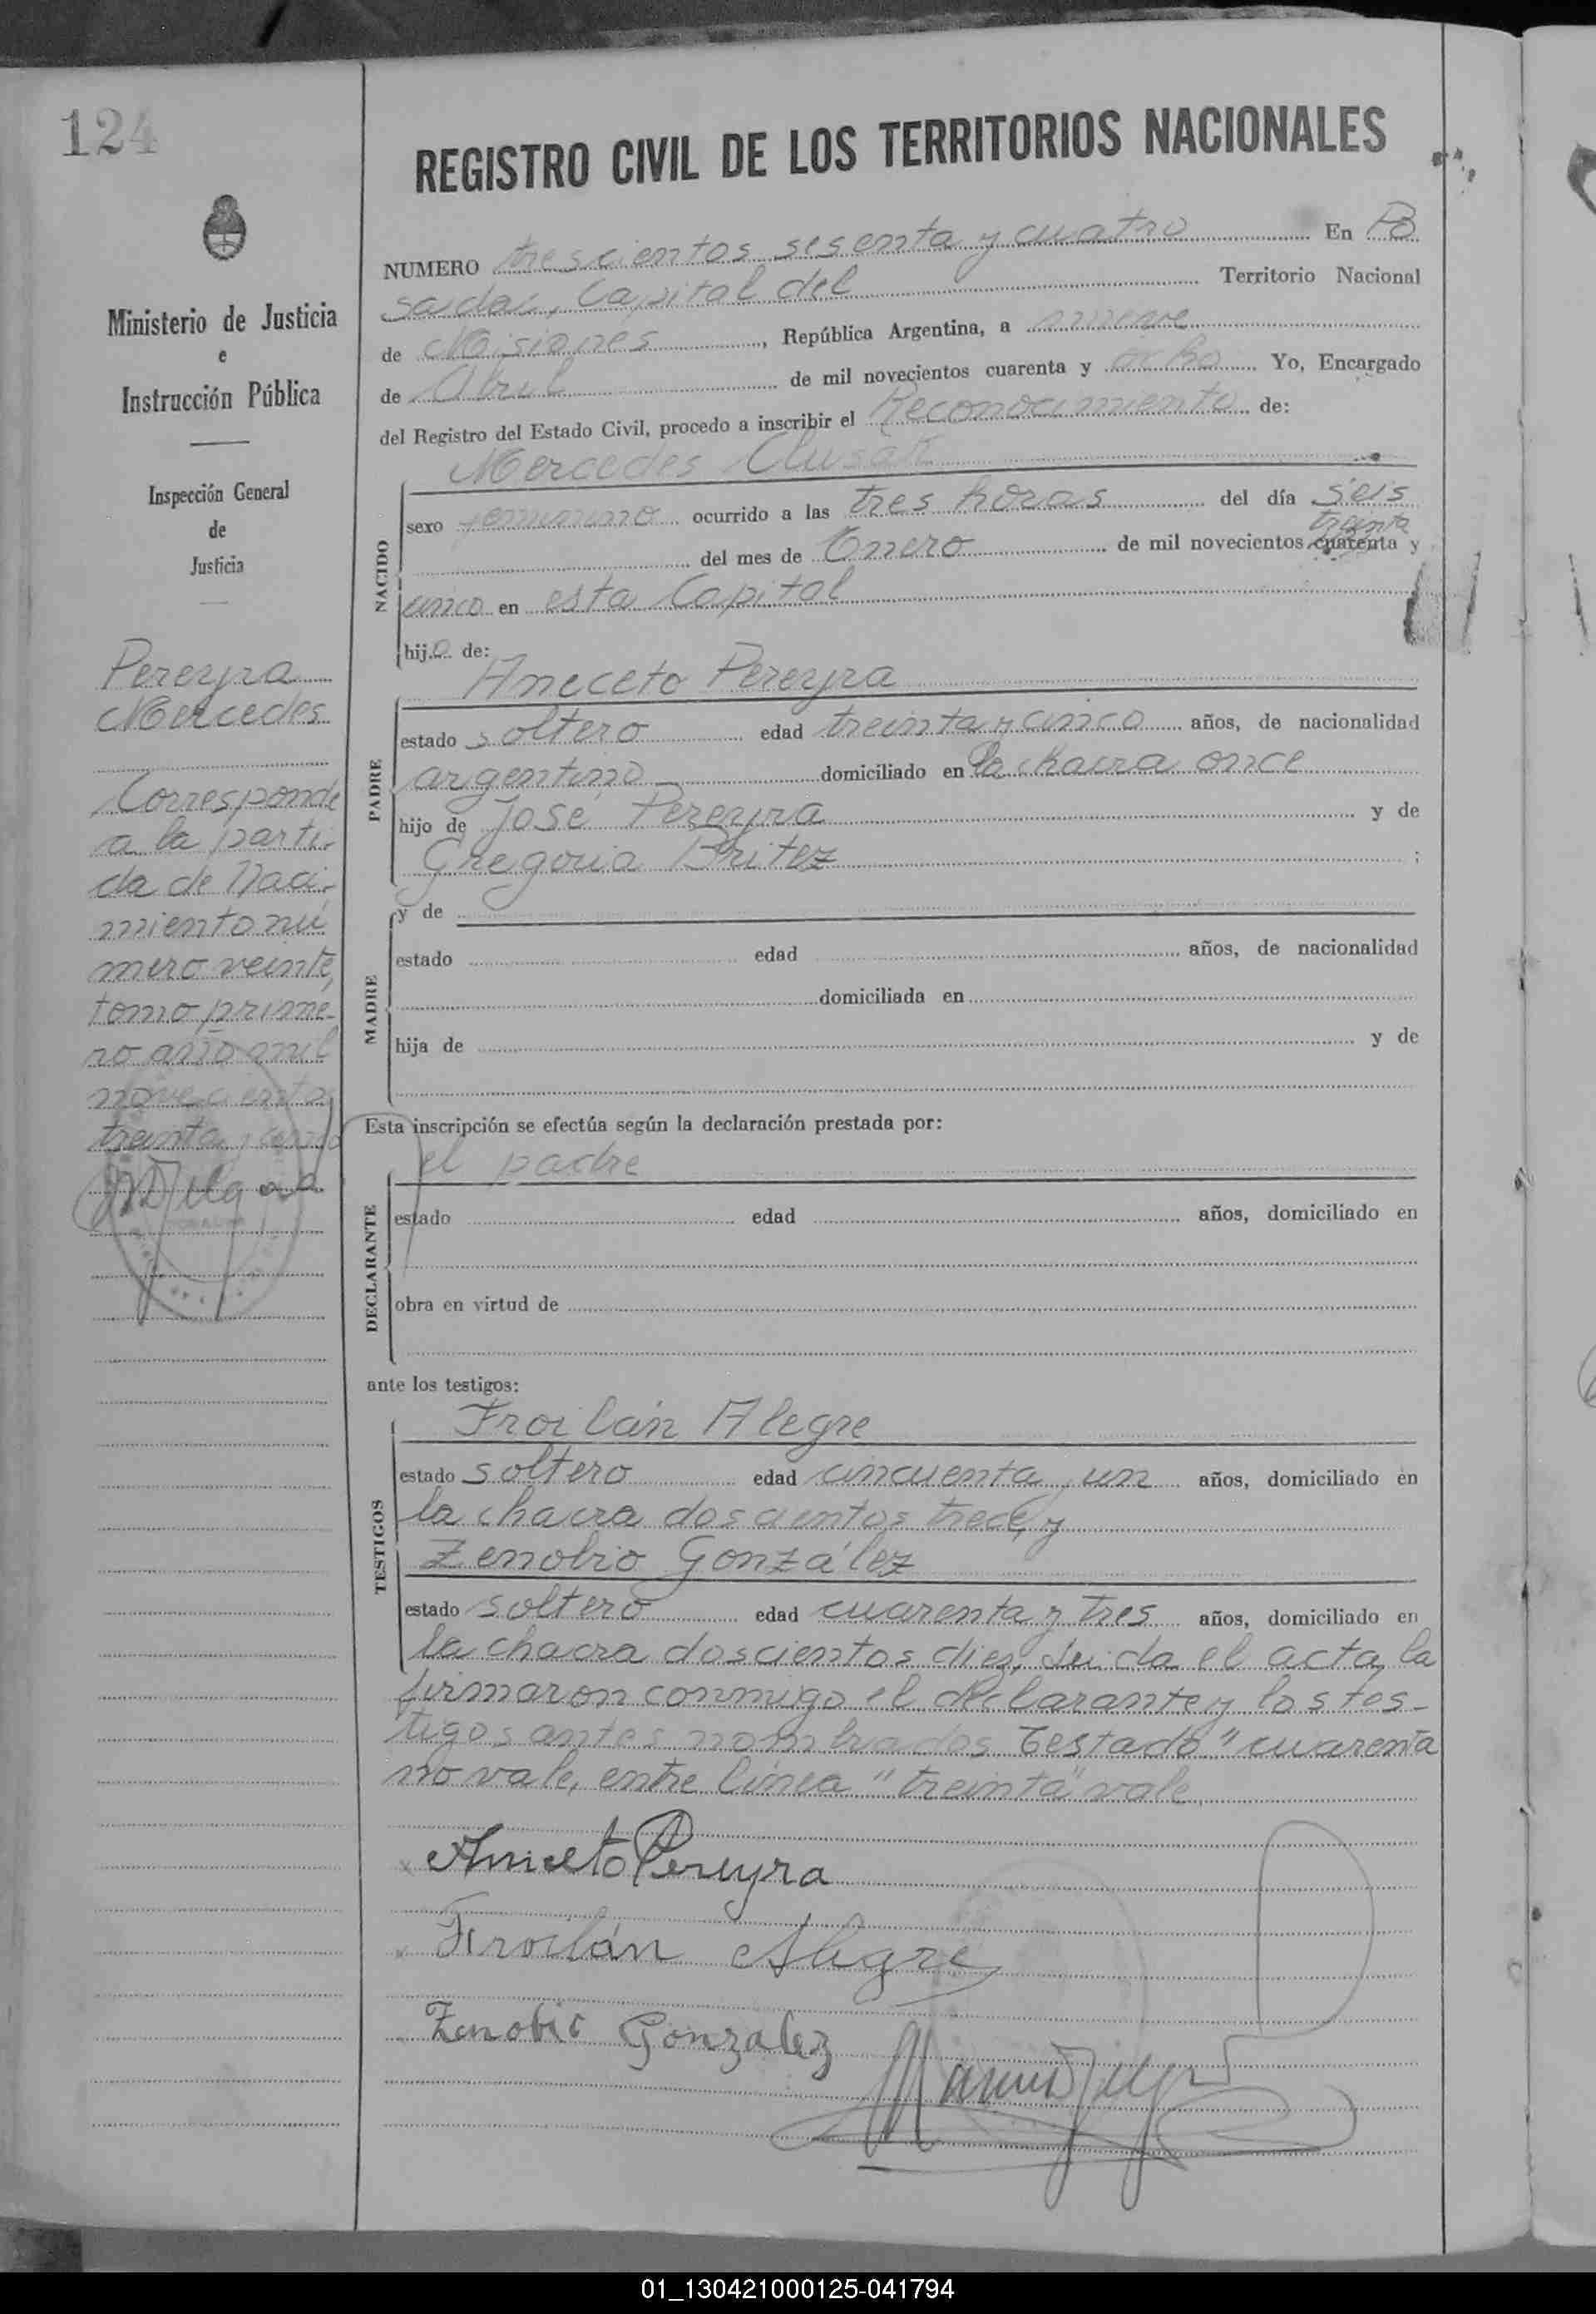 124
REGISTRO CIVIL DE LOS TERRITORIOS NACIONALES
Ministerio de Justicia
e
Instrucción Pública
Inspección General
de
Justicia
Pereyra
Mercedes
Corresponde
a la parti-
da de Naci-
miento nú
mero veinte,
tomo prime-
ro año mil
novecientos
treinta y cinco
NUMERO trescientos sesenta y cuatro En Po
sadas, Capital del Territorio Nacional
de Misiones, República Argentina, a nueve
de Abril de mil novecientos cuarenta y ocho Yo, Encargado
del Registro del Estado Civil, procedo a inscribir el Reconocimiento de:
Mercedes
NACIDO
sexo femenino ocurrido a las tres horas del día seis
treinta
del mes de Enero de mil novecientos cuarenta y
cinco en esta Capital
hija de:
Aneceto Pereyra
PADRE
estado soltero edad treinta y cinco años, de nacionalidad
argentino domiciliado en la chacra once
hijo de José Pereyra y de
Gregoria Britez ;
MADRE
y de
estado edad años, de nacionalidad
domiciliada en
hija de y de
Esta inscripción se efectúa según la declaración prestada por:
el padre
DECLARANTE
estado edad años, domiciliado en
obra en virtud de
ante los testigos:
TESTIGOS
Froilán Alegre
estado soltero edad cincuenta y un años, domiciliado en
la chacra doscientos trece, y
Zenobio González
estado soltero edad cuarenta y tres años, domiciliado en
la chacra doscientos diez. Leida el acta, la
firmaron conmigo el declarante y los tes-
tigos antes nombrados Testado "cuarenta
no vale, entre línea "treinta" vale
Aniceto Pereyra
Froilán Alegre
Zenobio Gonzalez
01_130421000125-041794